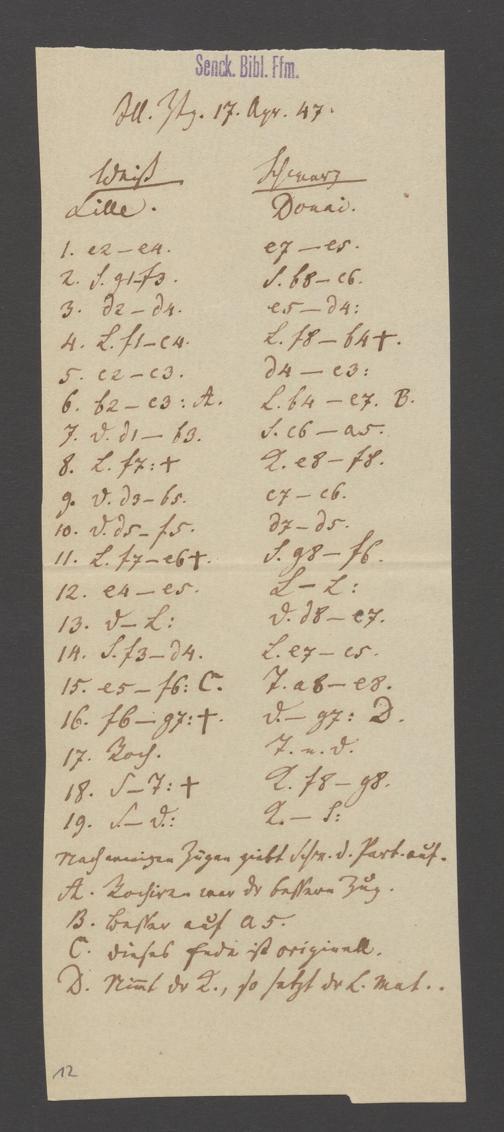 Senck. Bibl. Ffm.
Ill. Ztg. 17. Apr. 47.
Weiß Schwarz
Lille. Douai.
1. e2–e4. e7–e5.
2. S. g1–f3. S. b8–c6.
3. d2–d4. e5–d4:
4. L. f1–c4. L. f8–b4+.
5. c2–c3. d4–c3:
6. b2–c3: A. L. b4–e7. B.
7. D. d1–b3. S. c6–a5.
8. L. f7:+ K. e8–f8.
9. D. d3–b5. c7–c6.
10. D. d5–f5. d7–d5.
11. L. f7–e6+. S. g8–f6.
12. e4–e5. L–L:
13. D–L: D. d8–e7.
14. S. f3–d4. L. e7–c5.
15. e5–f6: C. T. a8–e8.
16. f6–g7:+. D.–g7: D.
17. Roch. T. n. D.
18. S–T:+ K. f8–g8.
19. S.–D.: K.–S:
Nach einigen Zügen giebt Schw. d. Part. auf.
A. Rochiren war der bessere Zug.
B. besser auf a5.
C. dieses Ende ist originell.
D. Nimt der K., so setzt der L. Mat..
12